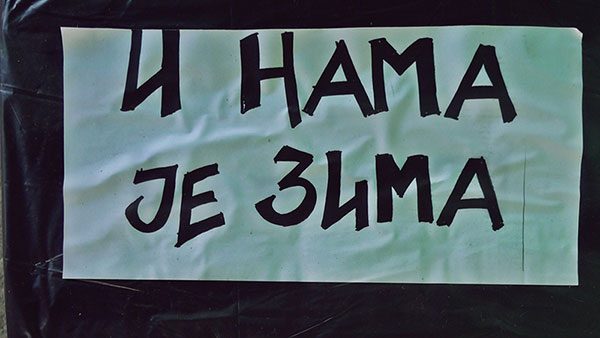 И НАМА
ЈЕ ЗИМА